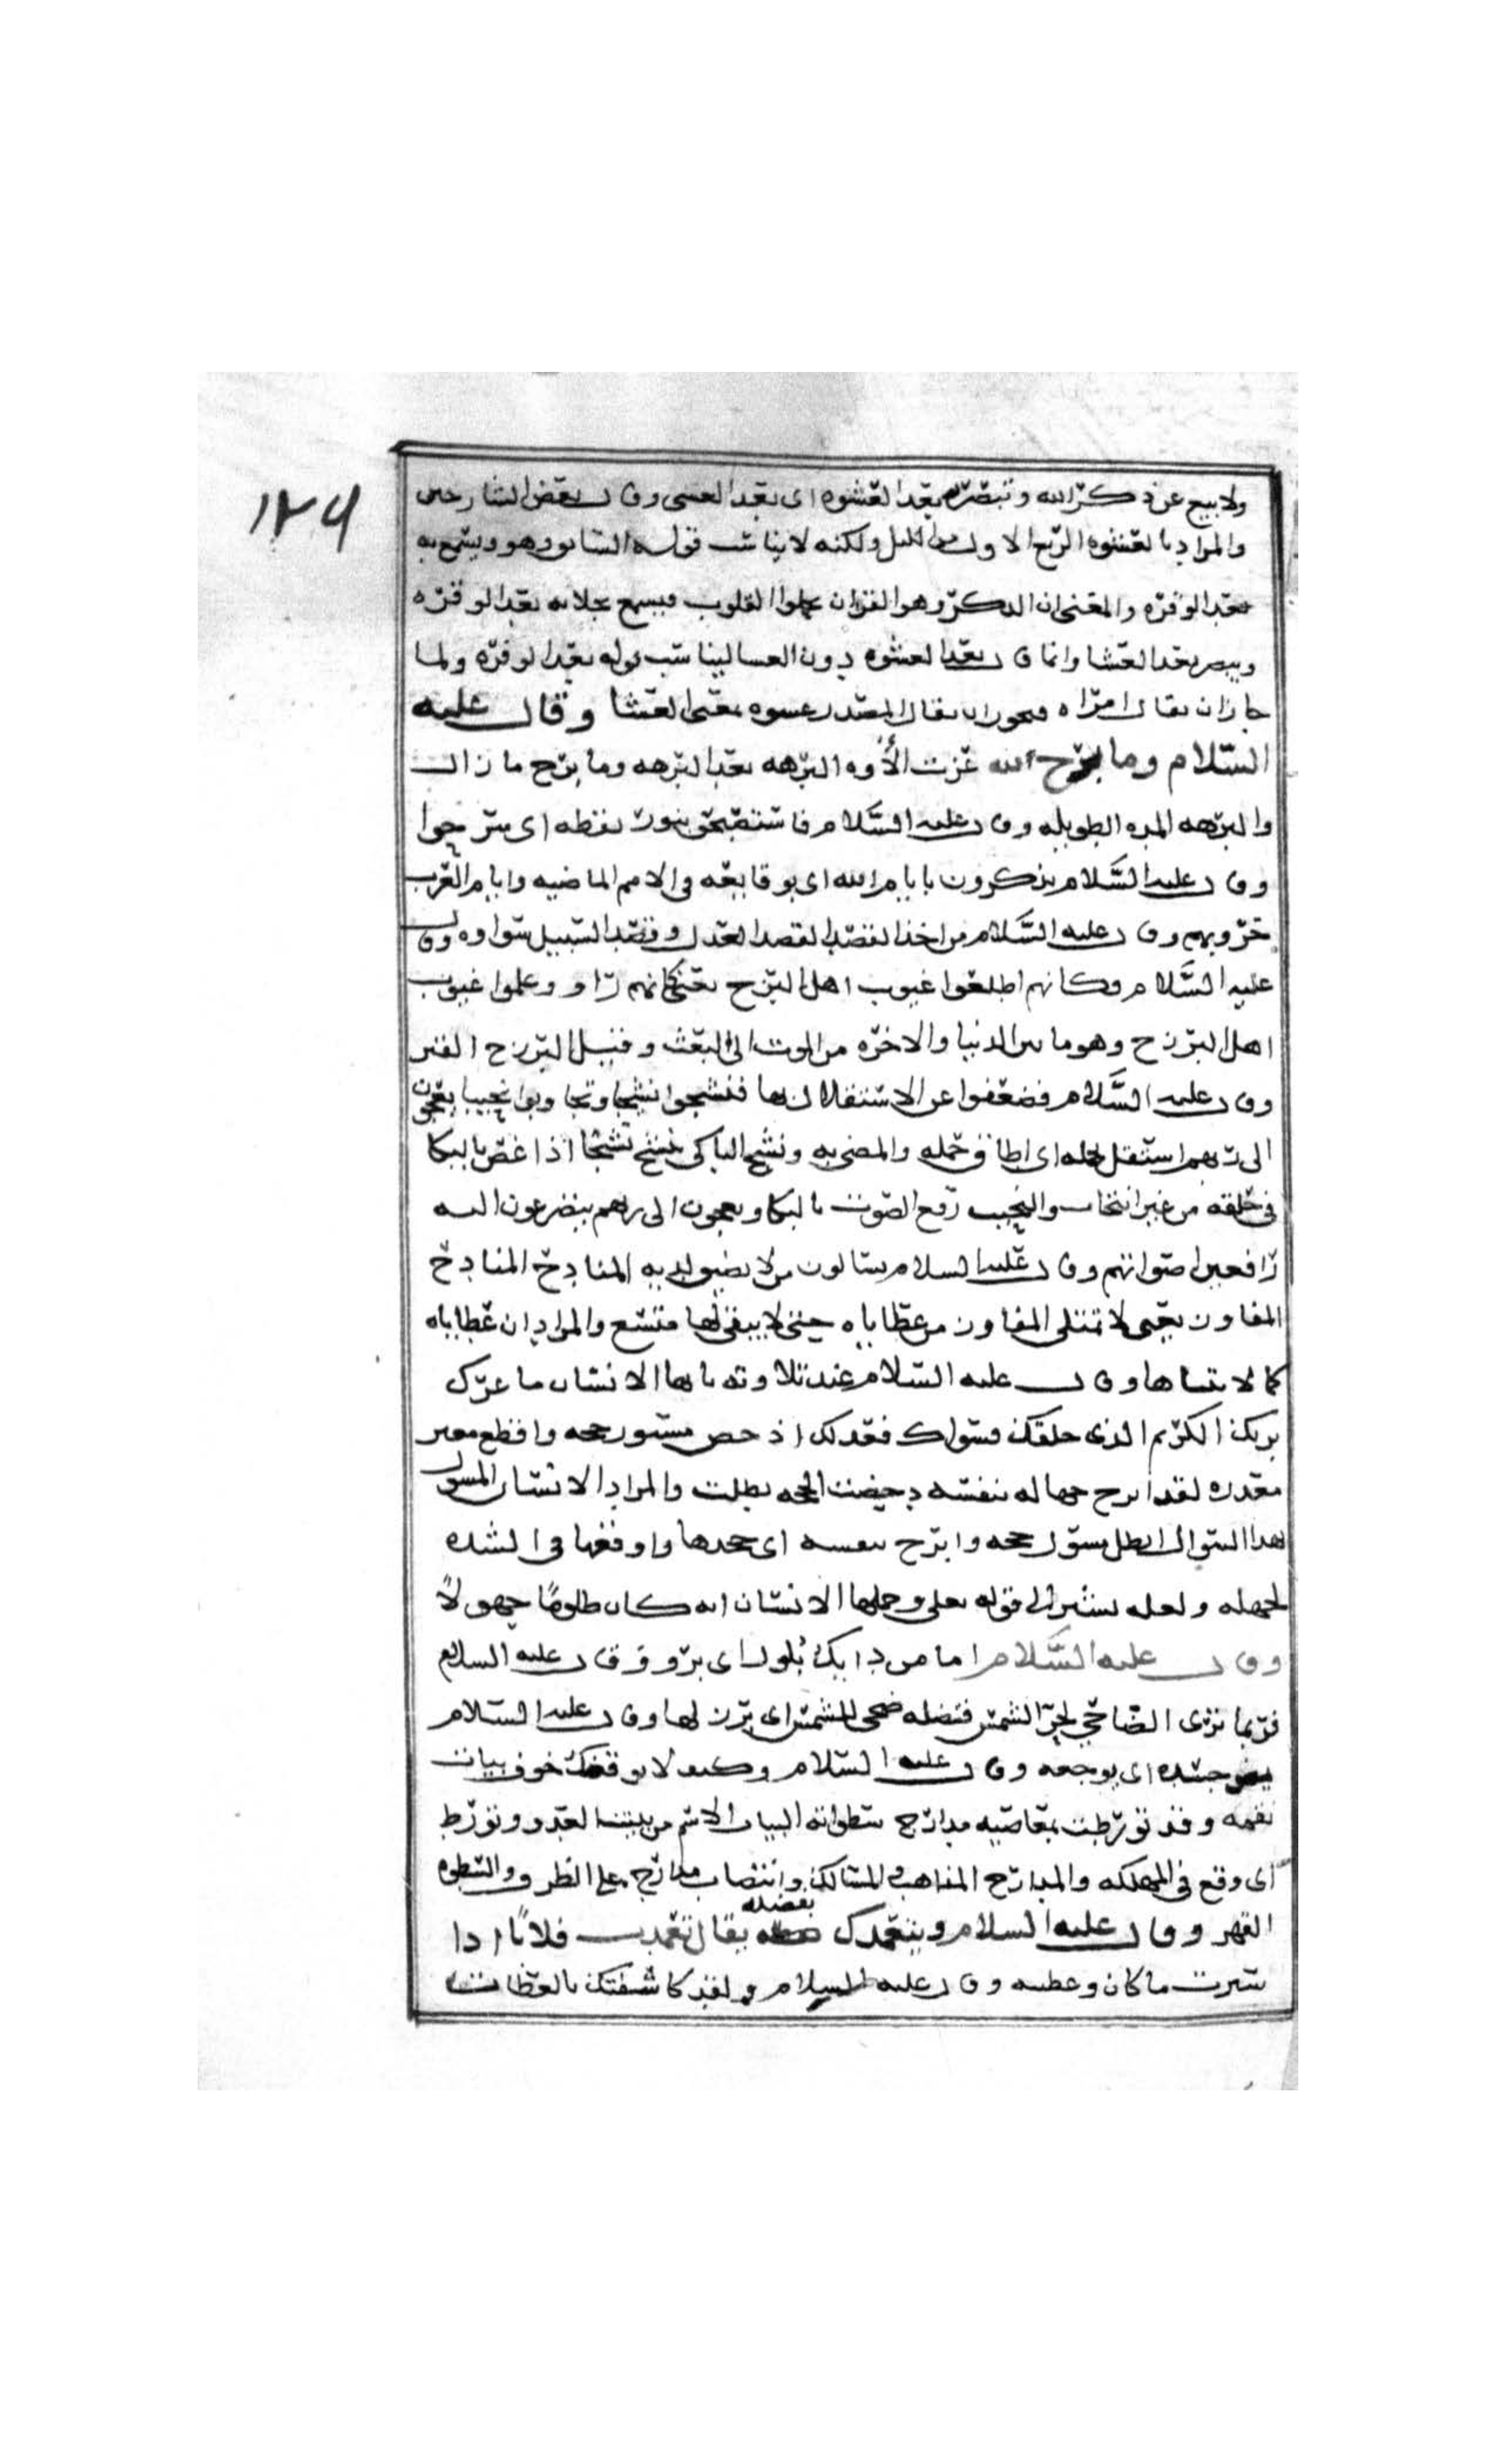 ١٢٦
ولا بيع عن ذكر الله وتبصر به بعد العشوه اى بعد العشى وقال بعض الشارحين
والمراد بالعشوه الربع الاول من الليل ولكنه لا يناسب قوله السابق وهو ويسمع به
بعد الوقره والمعنى ان الذكر وهو القران يجلوا القلوب فيسمع بجلائه بعد الوقره
ويبصر بعد العشا وانما قال بعد العشوه دون العسا ليناسب قوله بعد الوقره ولما
جاز ان يقال امراه فيجوز ان يقال المصدر عسوه بمعنى العشا وقال عليه
السلام وما برح لله عزت الأوه البرهه بعد البرهه وما برح ما زال
والبرهه المده الطويله وقال عليه السلام فاستصبحو بنور يقظه اى سرجوا
وقال عليه السلام يذكرون بايام الله اى بوقايعه فى الامم الماضيه وايام العرب
حروبهم وقال عليه السلام من اخذ القصد القصد العدل وقصد السبيل سواوه وقال
عليه السلام وكانهم اطلعوا غيوب اهل البرزح يعنى كانهم راو وعلموا غيوب
اهل البرزخ وهو ما بين الدنيا والاخره من الموت الى البعث وقيل البرزح القبر
وقال عليه السلام فضعفوا عن الاستقلال بها فنشجوا نشيجا وتجاوبوا نحيبا يعجون
الى ربهم استقل بحمله اى اطاق حمله والمضى به ونشج الباكى ينشج نشيجا اذا غص بالبكا
فى حلقه من غير انتحاب والنحيب رفع الصوت بالبكا ويعجون الى ربهم يتضرعون اليه
رافعين اصواتهم وقال عليه السلام يسالون من لا يضيق لديه المنادح المنادح
المفاوز يعنى لا تمتلى المفاوز من عطاياه حتى لا يبقى لها متسع والمراد ان عطاياه
كما لا يتناها وقال عليه السلام عند تلاوته يا ايها الانسان ما غرك
بربك الكريم الذى خلقك فسواك فعدلك اذحض مسئول حجه واقطع معبر
معذره لقد ابرح جهاله بنفسه دحضت الحجه بطلت والمراد الانسان المسول
بهذا السوال ابطل مسوول حجه وابرح بنفسه اى جحدها واوقفها فى الشده
لجهله ولعله يشير الى قوله تعلى وحملها الانسان انه كان ظلوما جهولاً
وقال عليه السلام اما من دايك بلول اى برو وقال عليه السلام
فربما ترى الضاحى لحر الشمس فتضله ضحى للشمس اى برز لها وقال عليه السلام
يمض جسده اى يوجعه وقال عليه السلام وكيف لا يوقضك خوف بيات
نقمه وقد تورطت بمعاصيه مدارج سطواته البيات الاسم من بيتت العدو وتورط
اى وقع فى المهلكه والمدارج المذاهب والمسالك وانتصاب مدارج على الظرف والسطوه
القهر وقال عليه السلام ويتغمدك بفضله يقال تغمدت فلاناً اذا
سترت ما كان وغطيته وقال عليه السلام ولقد كاشفتك بالعظات